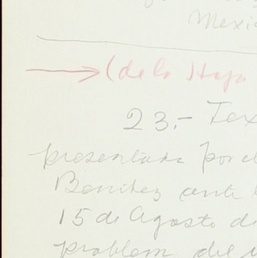 Mexic
(de la Hoja
23.- Tex
presentada por el
Benitez ante
15 de Agosto de
problem del